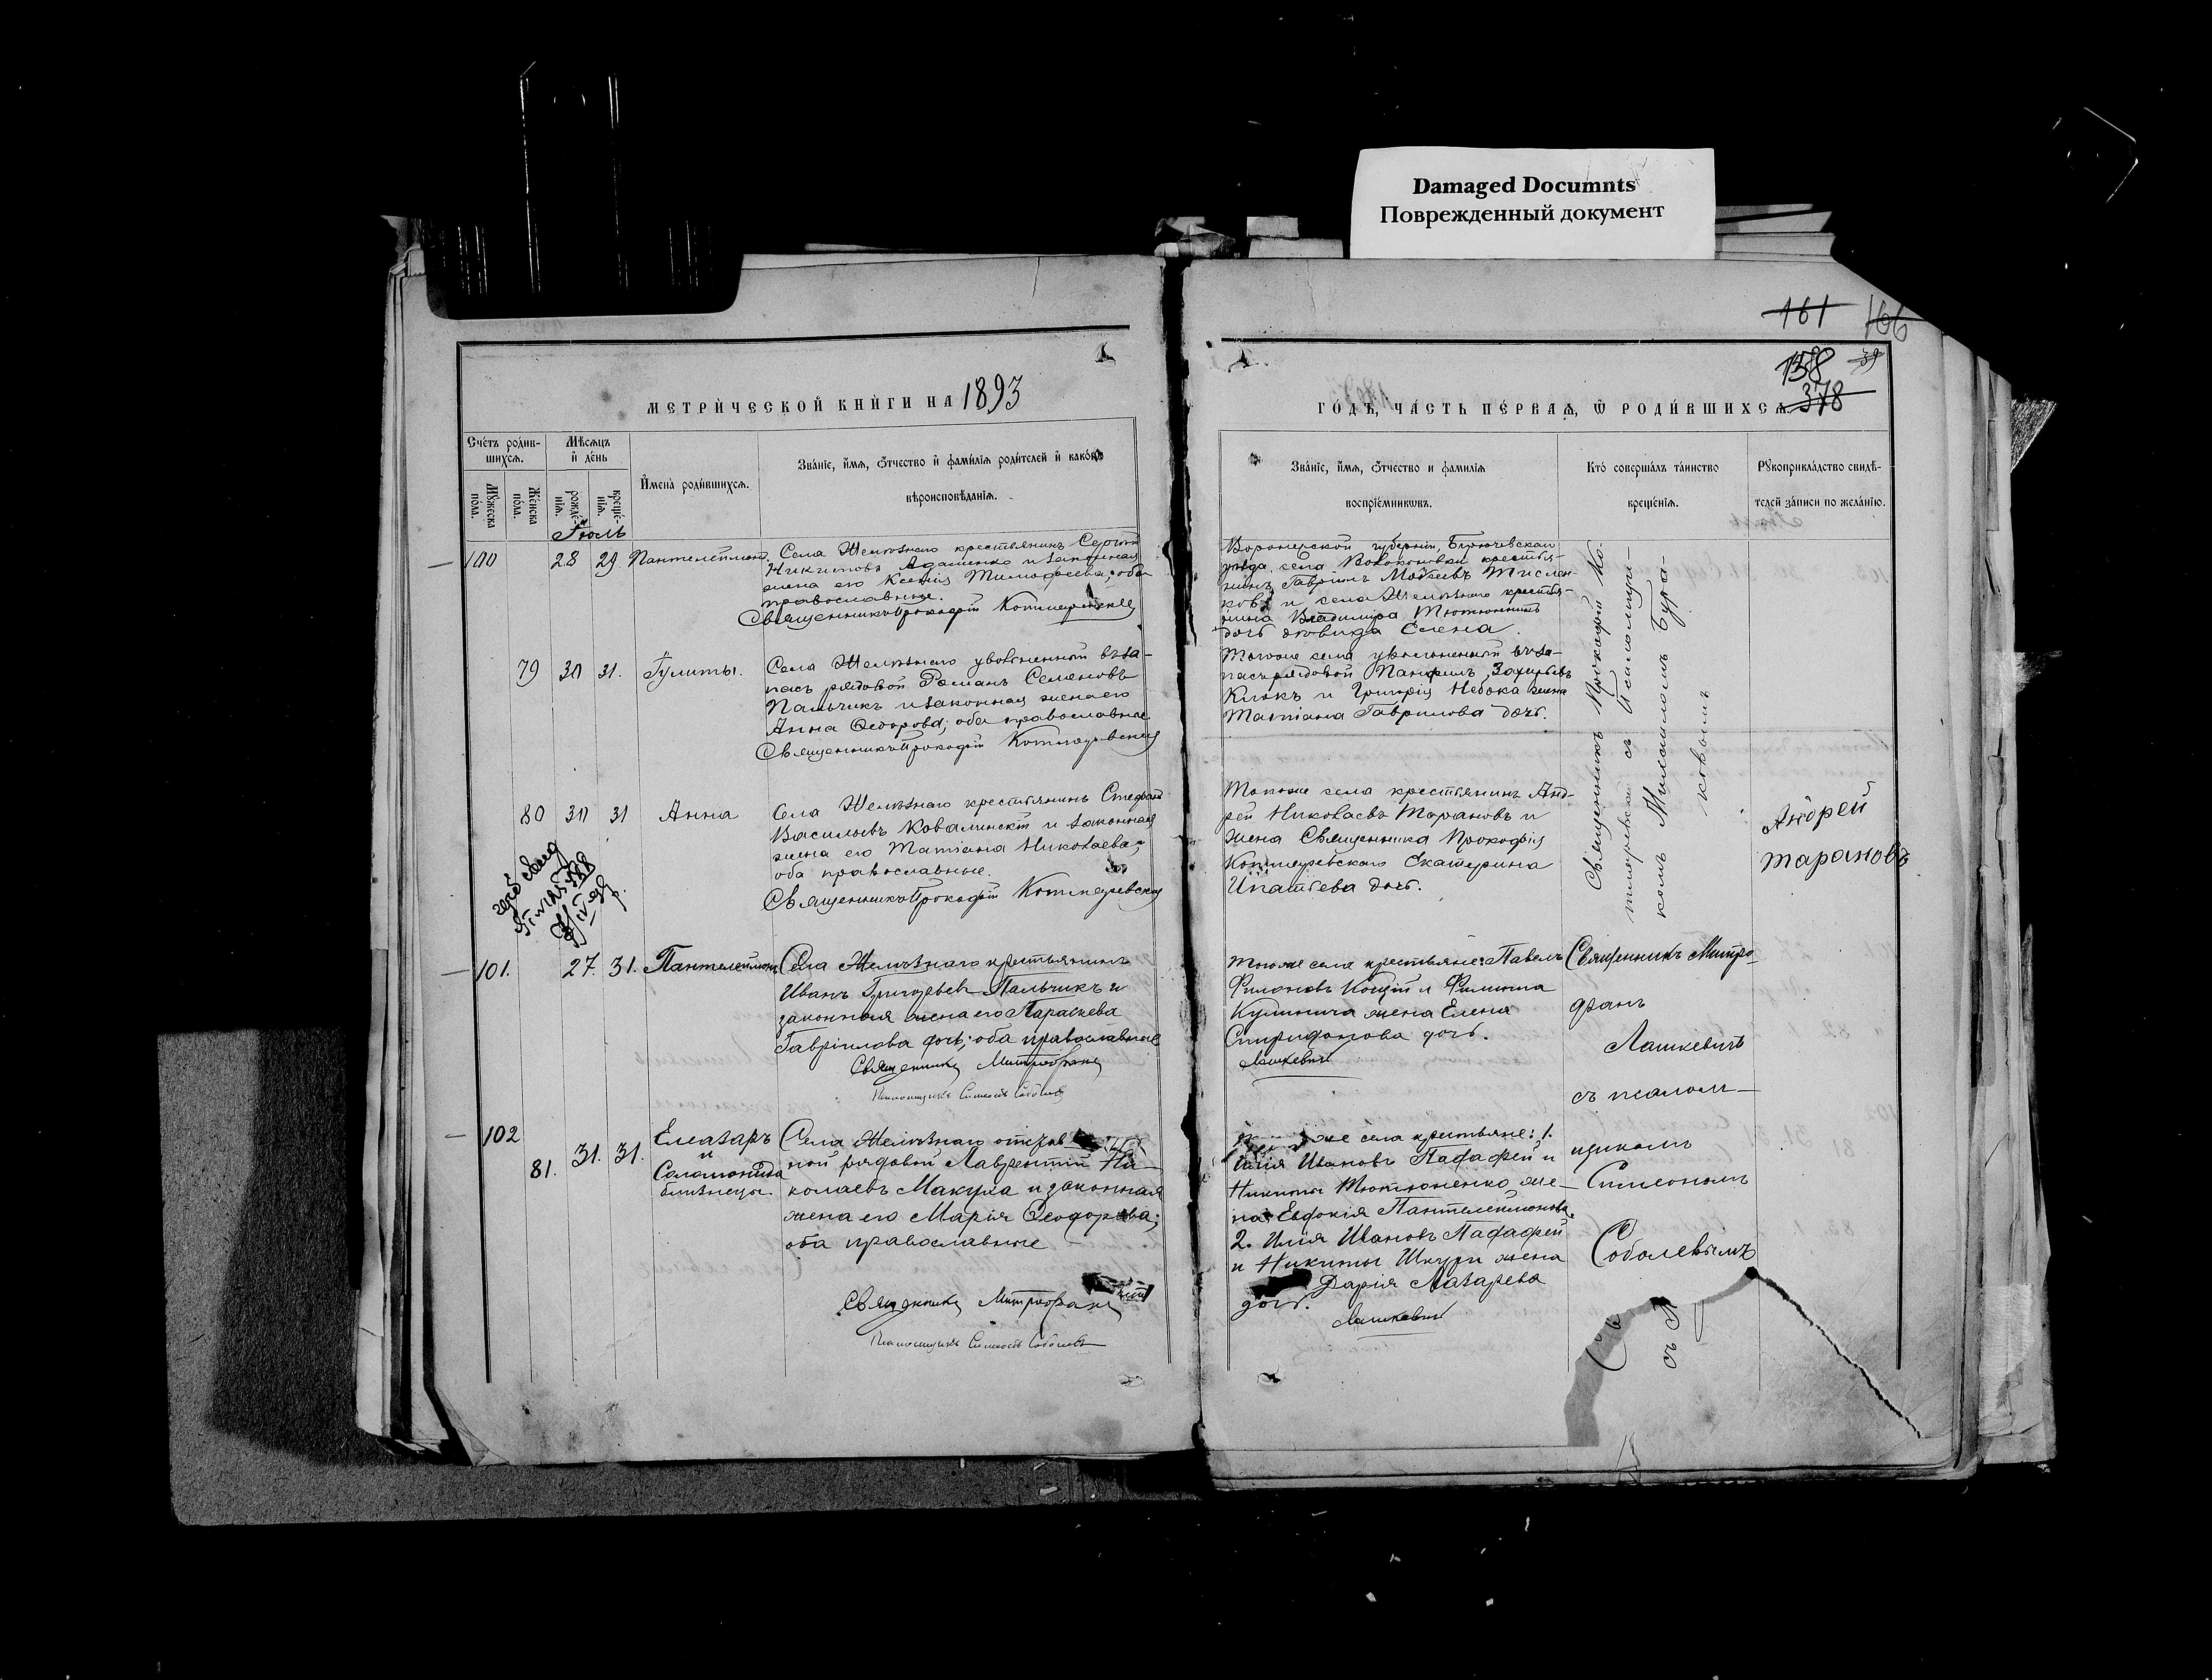 Damaged Documnts
Поврежденный документ
161 166
158 39
378
МЕТРИ́ЧЕСКОЙ КНИ́ГИ НА 1893
ГО́ДЪ, ЧА́СТЬ ПЕ́РВАѦ, Ѡ РОДИ́ВШИХСѦ.
Сче́тъ роди́в-
шихсѧ.
Мѣ́сѧцъ
и де́нь
Мꙋ́жеска по́ла.
Же́нска по́ла.
рожде́-
нїѧ.
креще́-
нїѧ.
И҆мена̀ роди́вшихсѧ.
Зва́нїе, и҆́мѧ, ѻ҆́тчество и҆ фами́лїѧ роди́телей и҆ како́гѡ
вѣроисповѣ́данїѧ.
Зва́нїе, и҆́мѧ, ѻ҆́тчество и фами́лїѧ
воспрїе́мникѡвъ.
Кто̀ соверша́лъ та́инство
креще́нїѧ.
Рꙋкоприкла́дство свидѣ́-
телей за́писи по жела́нїю.
Іюль
100 28 29 Пантелеймонъ.
Села Желѣзнаго крестьянинъ Сергій
Никитовъ Адаменко и законная
жена его Ксенія Тимофеева; оба
православные.
Священникъ Прокофій
Воронежской губерніи, Бирючевскаго
уѣзда, села Волоконовки крестья-
нинъ Гавріилъ
и села Желѣзнаго крестья-
нина Владимира
дочь Елена.
79 30 31. Іулиты.
Села Желѣзнаго уволенный въ за-
пасъ рядовой Романъ Семеновъ
Пальчикъ и законная жена его
Анна Ѳедорова; оба православные
Священникъ Прокофій
Тогоже села уволенный въ за-
пасъ рядовой Панфилъ Захарьевъ
Клокъ и Григорія жена
Татіана Гаврилова дочь.
80 30 31 Анна
Села Желѣзнаго крестьянинъ Стефанъ
Васильевъ Ковалинскій и законная
жена его Татіана Николаева;
оба православные.
Священникъ Прокофій
Тогоже села крестьянинъ Анд-
рей Николаевъ Тарановъ и
жена Священника Прокофія
Екатерина
Ипатьева дочь.
Священникъ Прокофій
съ Псаломщи-
комъ
ковымъ
Андрей
Тарановъ
101. 27. 31. Пантелеймонъ
Села Желѣзнаго крестьянинъ
Иванъ Григорьевъ Пальчикъ и
законная жена его Параскева
Гавріилова дочь; оба православные
Священникъ Митрофанъ
Псаломщикъ Симеонъ Соболевъ
Тогоже села крестьяне: Павелъ
Филоновъ и Филиппа
Кулинича жена Елена
Спиридонова дочь.
Лашкевичъ
Священникъ Митро-
фанъ
Лашкевичъ
съ псалом-
щикомъ
Симеономъ
Соболевымъ
102 81. 31. 31.
Елеазаръ
и
Саломонида
близнецы.
Села Желѣзнаго
рядовой Лаврентій Ни-
колаевъ Макуха и законная
жена его Марія Ѳеодорова;
оба православные
Священникъ Митрофанъ
Псаломщикъ Симеонъ Соболевъ
же села крестьяне: 1.
Илія Ивановъ Пафафей и
Никиты Тютюненко же-
на Евдокія Пантелеимонова.
2. Илія Ивановъ Пафафей
и Никиты Шкури жена
Дарія Лазарева
дочь.
Лашкевичъ